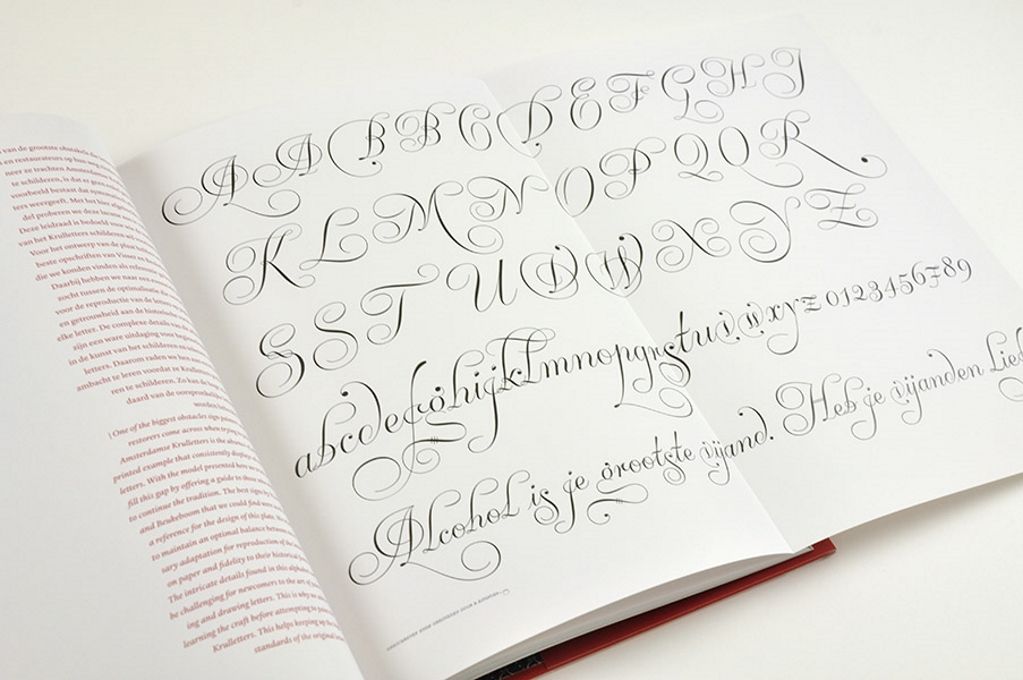 van de grootste obstakels
en restaurateurs op hun
neer ze trachten
te schilderen, is dat er geen
voorbeeld bestaat dat
ters weergeeft. Met het
del proberen we deze
Deze leidraad is bedoeld voor
van het Krulletters schilderen
Voor het ontwerp van de plaat
beste opschriften van Visser
die we konden vinden als
Daarbij hebben we naar een
zocht tussen de optimalisatie
voor de reproductie van de
en getrouwheid aan de
elke letter. De complexe details van
zijn een ware uitdaging voor
in de kunst van het schilderen
letters. Daarom raden we
ambacht te leren voordat ze
ren te schilderen. Zo kan de
daard van de
worden
| One of the biggest obstacles sign
restorers come across when trying
Amsterdamse Krulletters is the
printed example that consistently
letters. With the model presented here we
fill this gap by offering a guide to those
to continue the tradition. The best signs
and Beukeboom that we could find were
a reference for the design of this plate. We
to maintain an optimal balance between
sary adaptation for reproduction of the
on paper and fidelity to their historical
The intricate details found in this alphabet
be challenging for newcomers to the art of
ing and drawing letters. This is why we
learning the craft before attempting to
Krulletters. This helps keeping up the
standards of the original
A A B B C D E F G H I
K L M N O P Q O R .
S S T U D W X Y Z
abcdefghijklmnopqrstuvwxyz 0123456789
Alcohol is je grootste vijand. Heb je vijanden Lief